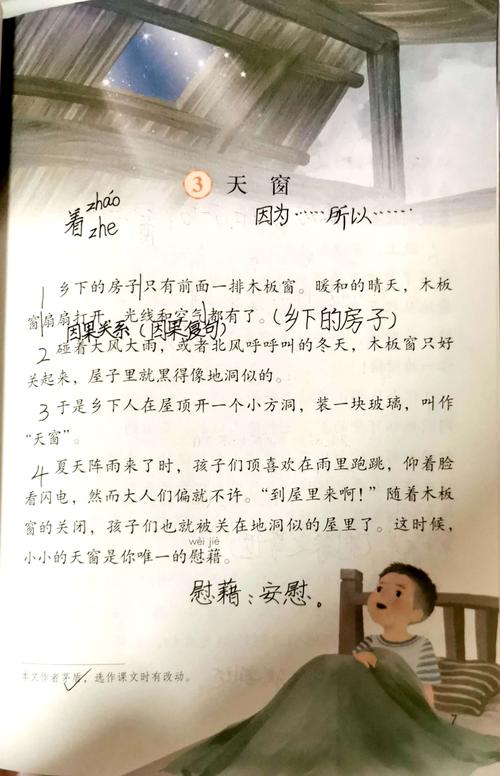 3 天窗
着 zháo
zhe
因为……所以……
1 乡下的房子只有前面一排木板窗。暖和的晴天，木板
窗扇扇打开，光线和空气都有了。（乡下的房子）
因果关系（因果复句）
2 碰着大风大雨，或者北风呼呼叫的冬天，木板窗只好
关起来，屋子里就黑得像地洞似的。
3 于是乡下人在屋顶开一个小方洞，装一块玻璃，叫作
“天窗”。
4 夏天阵雨来了时，孩子们顶喜欢在雨里跑跳，仰着脸
看闪电，然而大人们偏就不许。“到屋里来啊！”随着木板
窗的关闭，孩子们也就被关在地洞似的屋里了。这时候，
wèi jiè
小小的天窗是你唯一的慰藉。
慰藉：安慰。
本文作者茅盾，选作课文时有改动。
7